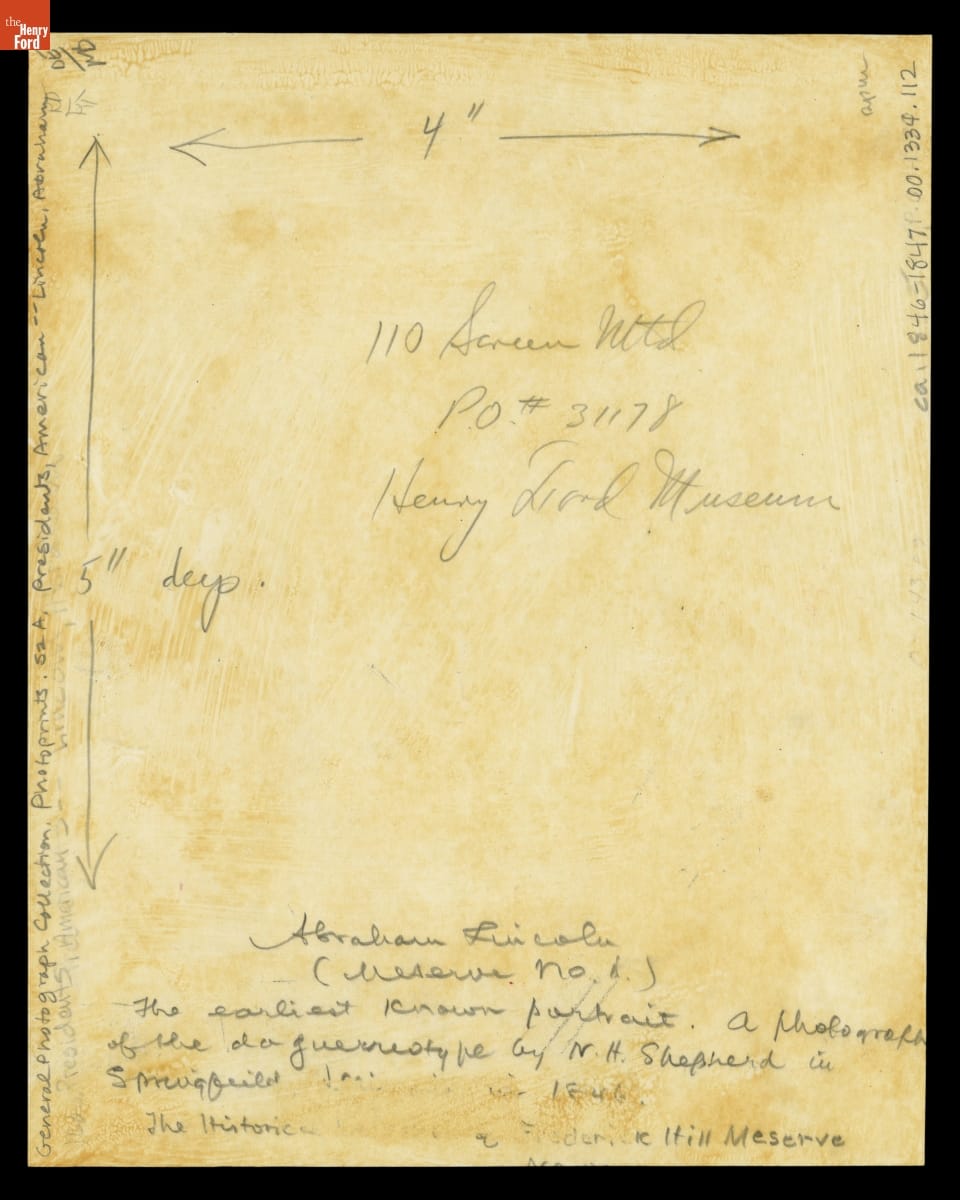 the
Henry
Ford
4"
110 Screen Mtd
P.O. # 31178
Henry Ford Museum
5" deep.
Abraham Lincoln
(Meserve No. 1.)
The earliest known portrait. A photograph
of the daguerreotype by N.H. Shepherd in
Springfield in 1846.
The Historical Frederick Hill Meserve
General Photograph Collection. Photoprints. S2A, Presidents, American -- Lincoln, Abraham
Presidents, American -- Lincoln
ca. 1846-1847 P.00.1334.112